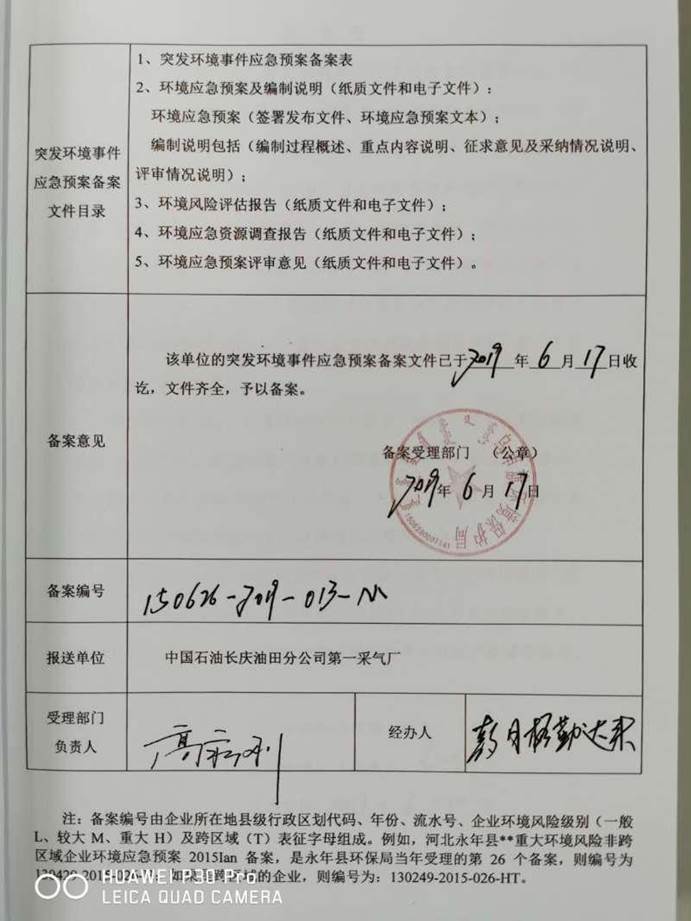 突发环境事件
应急预案备案
文件目录
1、突发环境事件应急预案备案表
2、环境应急预案及编制说明（纸质文件和电子文件）：
环境应急预案（签署发布文件、环境应急预案文本）；
编制说明包括（编制过程概述、重点内容说明、征求意见及采纳情况说明、
评审情况说明）；
3、环境风险评估报告（纸质文件和电子文件）；
4、环境应急资源调查报告（纸质文件和电子文件）；
5、环境应急预案评审意见（纸质文件和电子文件）。
备案意见
该单位的突发环境事件应急预案备案文件已于2019年6月17日收
讫，文件齐全，予以备案。
备案受理部门 （公章）
2019年6月17日
备案编号
150626-2019-013-M
报送单位
中国石油长庆油田分公司第一采气厂
受理部门
负责人
经办人
注：备案编号由企业所在地县级行政区划代码、年份、流水号、企业环境风险级别（一般
L、较大 M、重大 H）及跨区域（T）表征字母组成。例如，河北永年县**重大环境风险非跨
区域企业环境应急预案 2015Ian 备案，是永年县环保局当年受理的第 26 个备案，则编号为
跨区域的企业，则编号为：130249-2015-026-HT。
HUAWEI P30 Pro
LEICA QUAD CAMERA